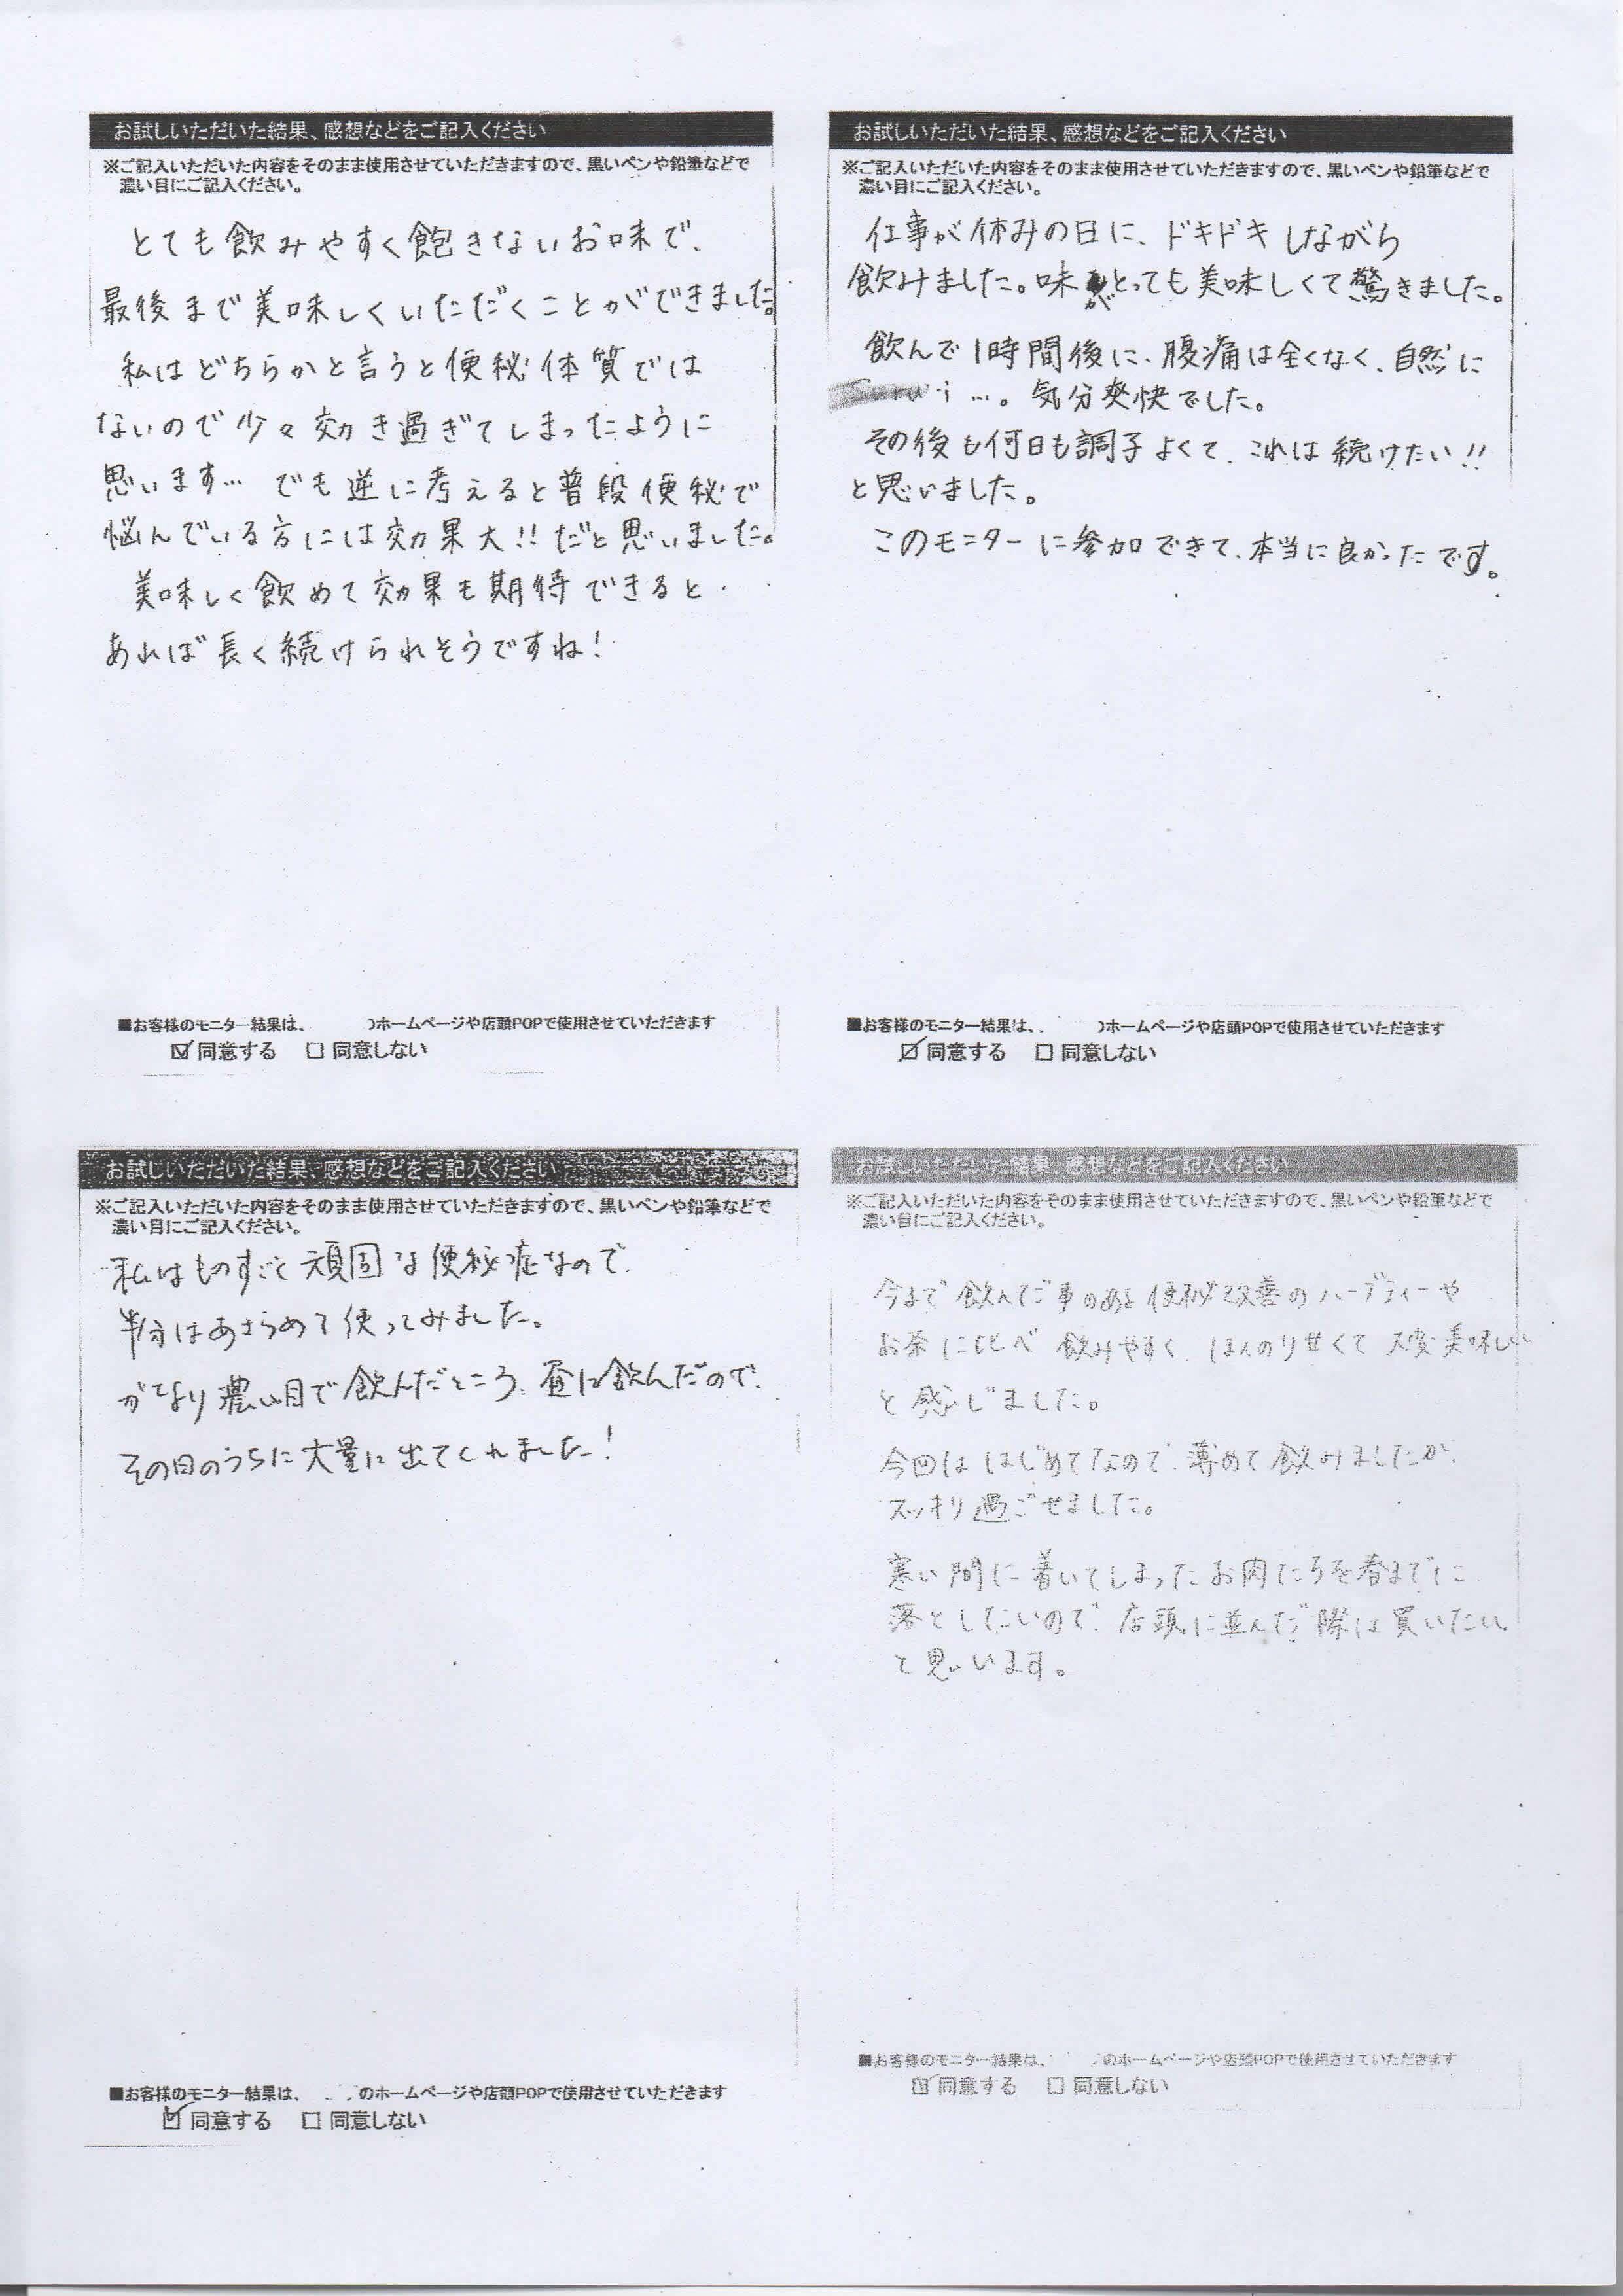 お試しいただいた結果、感想などをご記入ください
※ご記入いただいた内容をそのまま使用させていただきますので、黒いペンや鉛筆などで
濃い目にご記入ください。
とても飲みやすく飽きないお味で、
最後まで美味しくいただくことができました。
私はどちらかと言うと便秘体質では
ないので少々効き過ぎてしまったように
思います… でも逆に考えると普段便秘で
悩んでいる方には効果大!!だと思いました。
美味しく飲めて効果も期待できると
あれば長く続けられそうですね!
■お客様のモニター結果は、 のホームページや店頭POPで使用させていただきます
☑同意する □同意しない
お試しいただいた結果、感想などをご記入ください
※ご記入いただいた内容をそのまま使用させていただきますので、黒いペンや鉛筆などで
濃い目にご記入ください。
仕事が休みの日に、ドキドキしながら
飲みました。味がとっても美味しくて驚きました。
飲んで1時間後に、腹痛は全くなく、自然に
…。気分爽快でした。
その後も何日も調子よくて、これは続けたい!!
と思いました。
このモニターに参加できて、本当に良かったです。
■お客様のモニター結果は、 のホームページや店頭POPで使用させていただきます
☑同意する □同意しない
お試しいただいた結果、感想などをご記入ください
※ご記入いただいた内容をそのまま使用させていただきますので、黒いペンや鉛筆などで
濃い目にご記入ください。
私はものすごく頑固な便秘症なので
半分はあきらめて使ってみました。
かなり濃い目で飲んだところ、昼に飲んだので、
その日のうちに大量に出てくれました!
■お客様のモニター結果は、 のホームページや店頭POPで使用させていただきます
☑同意する □同意しない
お試しいただいた結果、感想などをご記入ください
※ご記入いただいた内容をそのまま使用させていただきますので、黒いペンや鉛筆などで
濃い目にご記入ください。
今まで飲んだ事のある便秘改善のハーブティーや
お茶に比べ飲みやすく、ほんのり甘くて大変美味しい
と感じました。
今回ははじめてなので、薄めて飲みましたが、
スッキリ過ごせました。
寒い間に着いてしまったお肉たちを春までに
落としたいので、店頭に並んだ際は買いたい
と思います。
■お客様のモニター結果は、 のホームページや店頭POPで使用させていただきます
☑同意する □同意しない